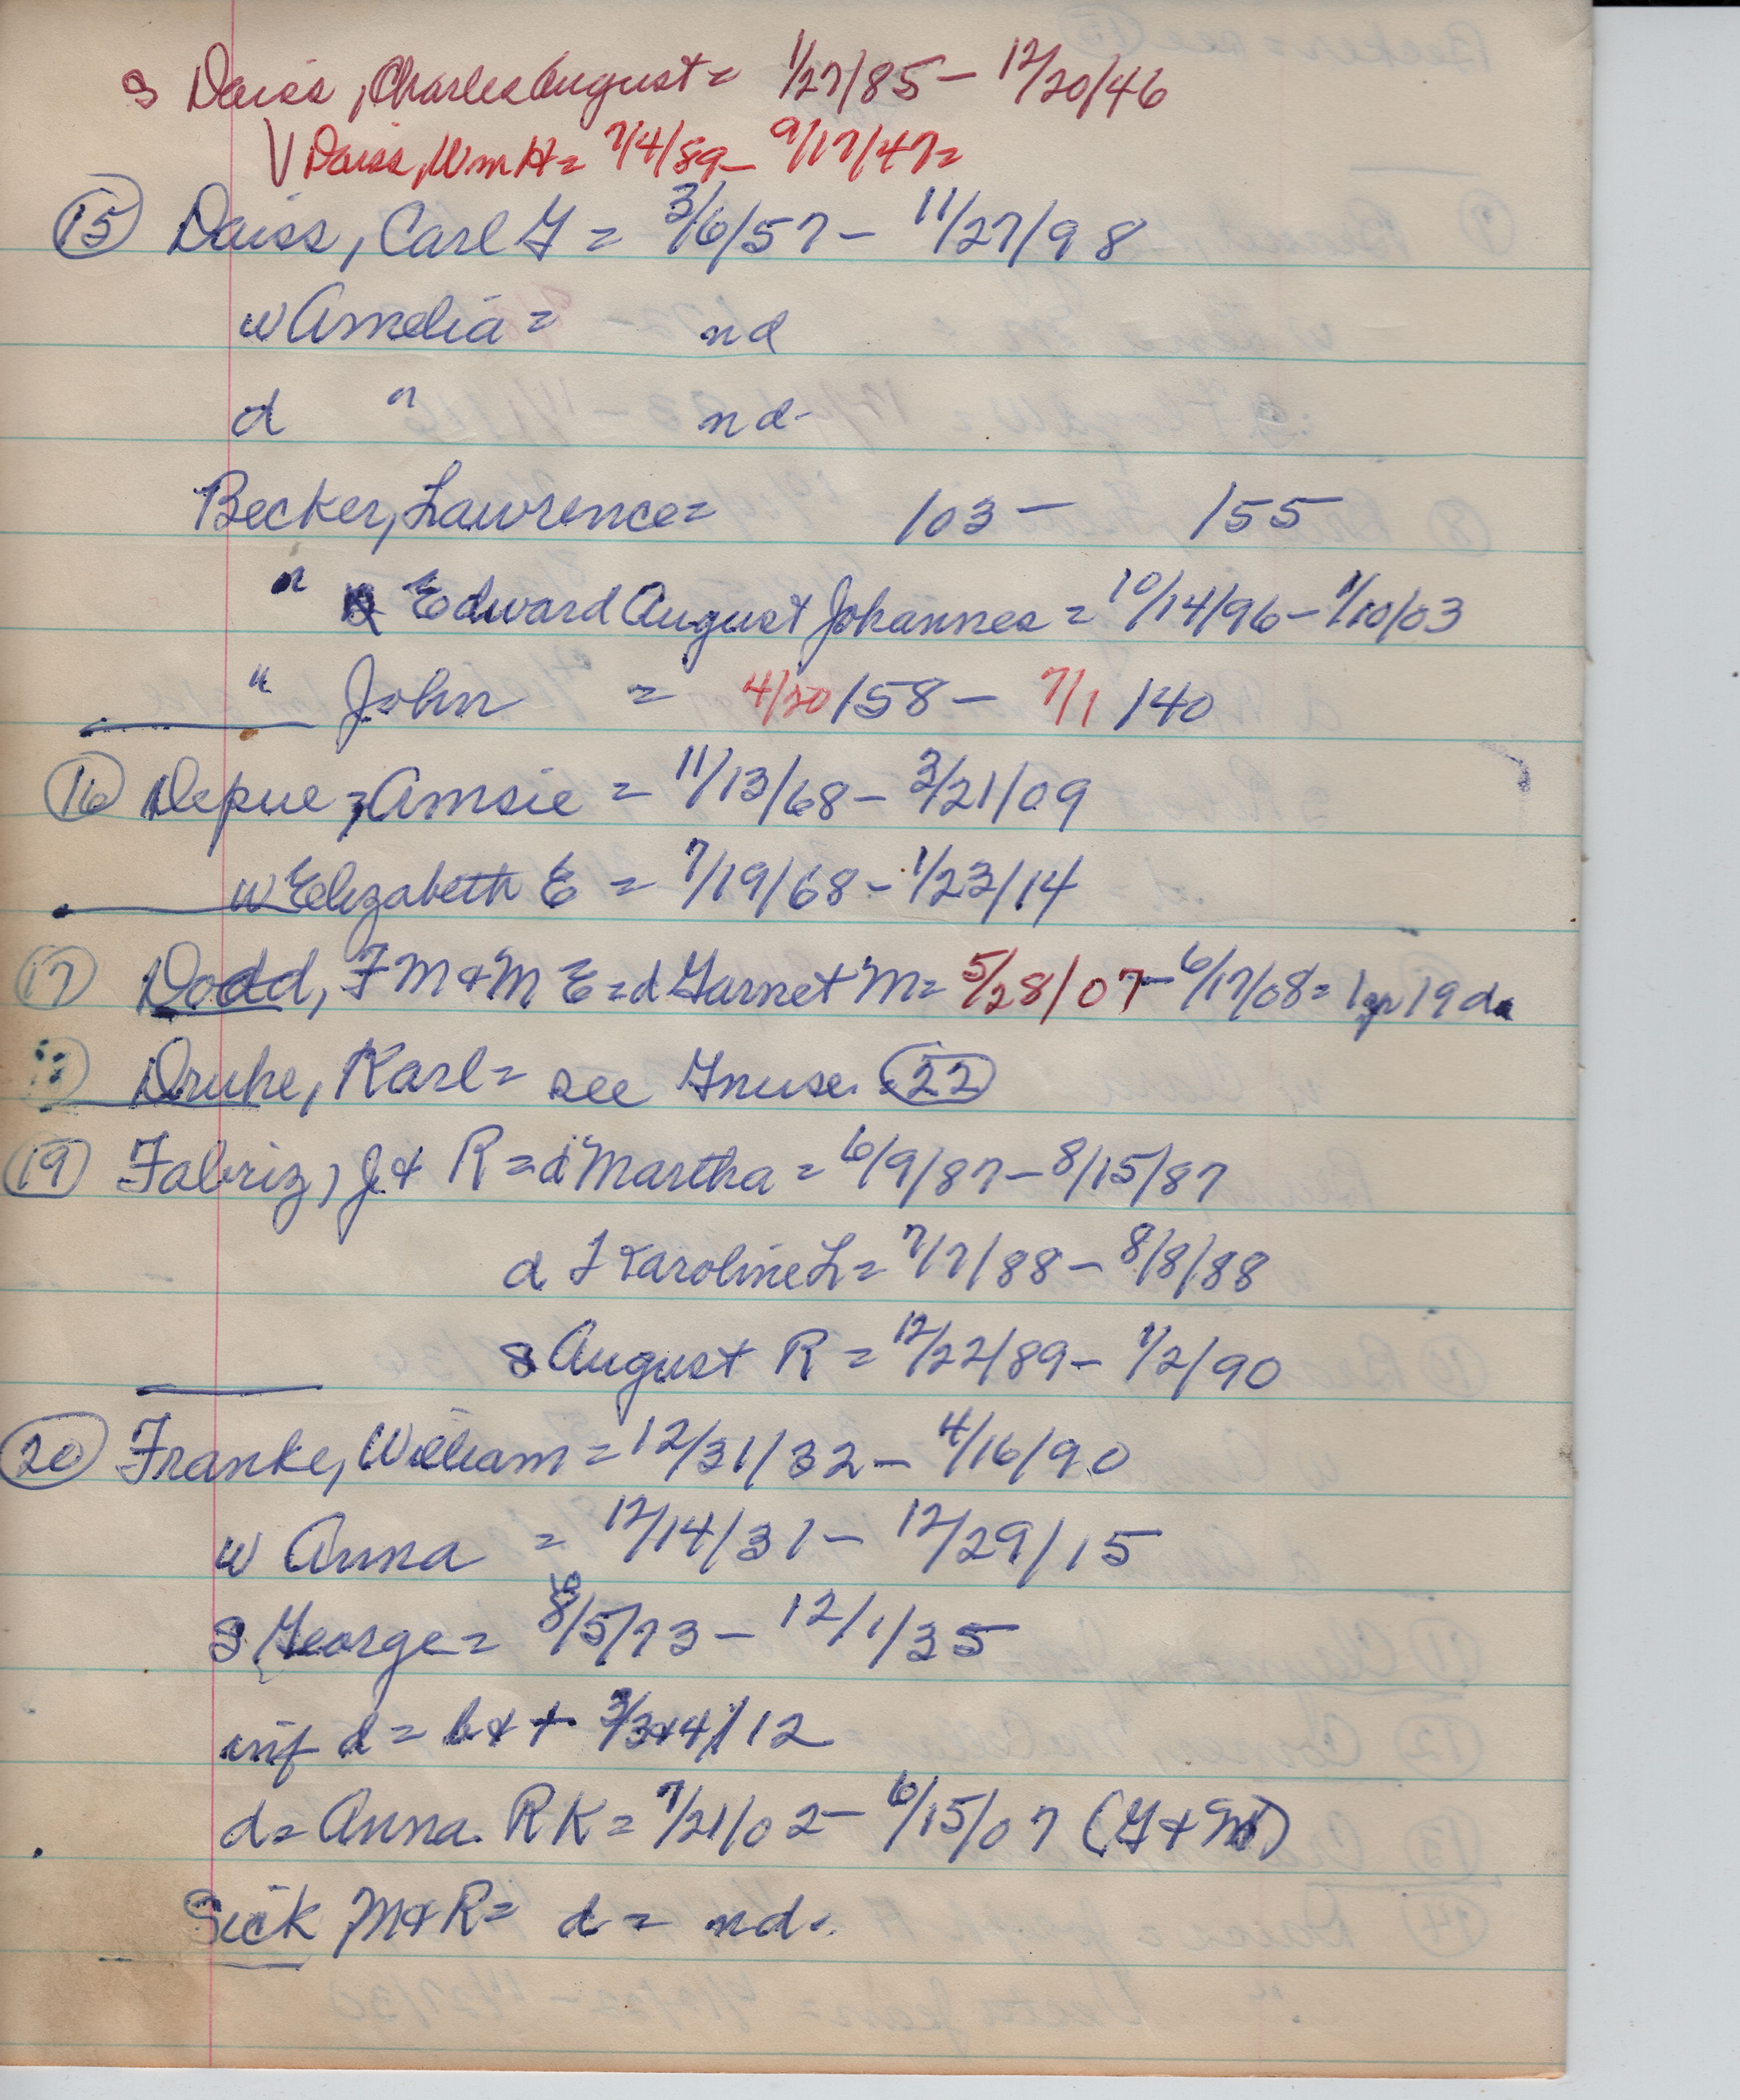 s Daiss, Charles August = 1/27/85 - 12/20/46
V Daiss, Wm H = 7/4/89 - 9/17/47 =
(15) Daiss, Carl G = 3/6/57 - 11/27/98
w Amelia = nd
d " nd -
Becker, Lawrence = /03 - /55
" Edward August Johannes = 10/14/96 - 1/10/03
" John = 4/20/58 - 7/1/40
(16) Depue, Amsie = 11/13/68 - 3/21/09
w Elizabeth E = 7/19/68 - 1/23/14
(17) Dodd, F M & M E = d Garnet M = 5/28/07 - 6/17/08 = 1 yr 19 da
Druhe, Karl = see Gnuse. (22)
(19) Fabriz, J & R = d Martha = 6/9/87 - 8/15/87
d F Karoline L = 7/7/88 - 8/8/88
s August R = 12/22/89 - 1/2/90
(20) Franke, William = 12/31/32 - 4/16/90
w Anna = 12/14/31 - 12/29/15
s George = 8/5/73 - 12/1/35
inf d = b & + 3/3&4/12
d = Anna. R K = 7/21/02 - 6/15/07 (G + M)
Sick M & R = d = nd.